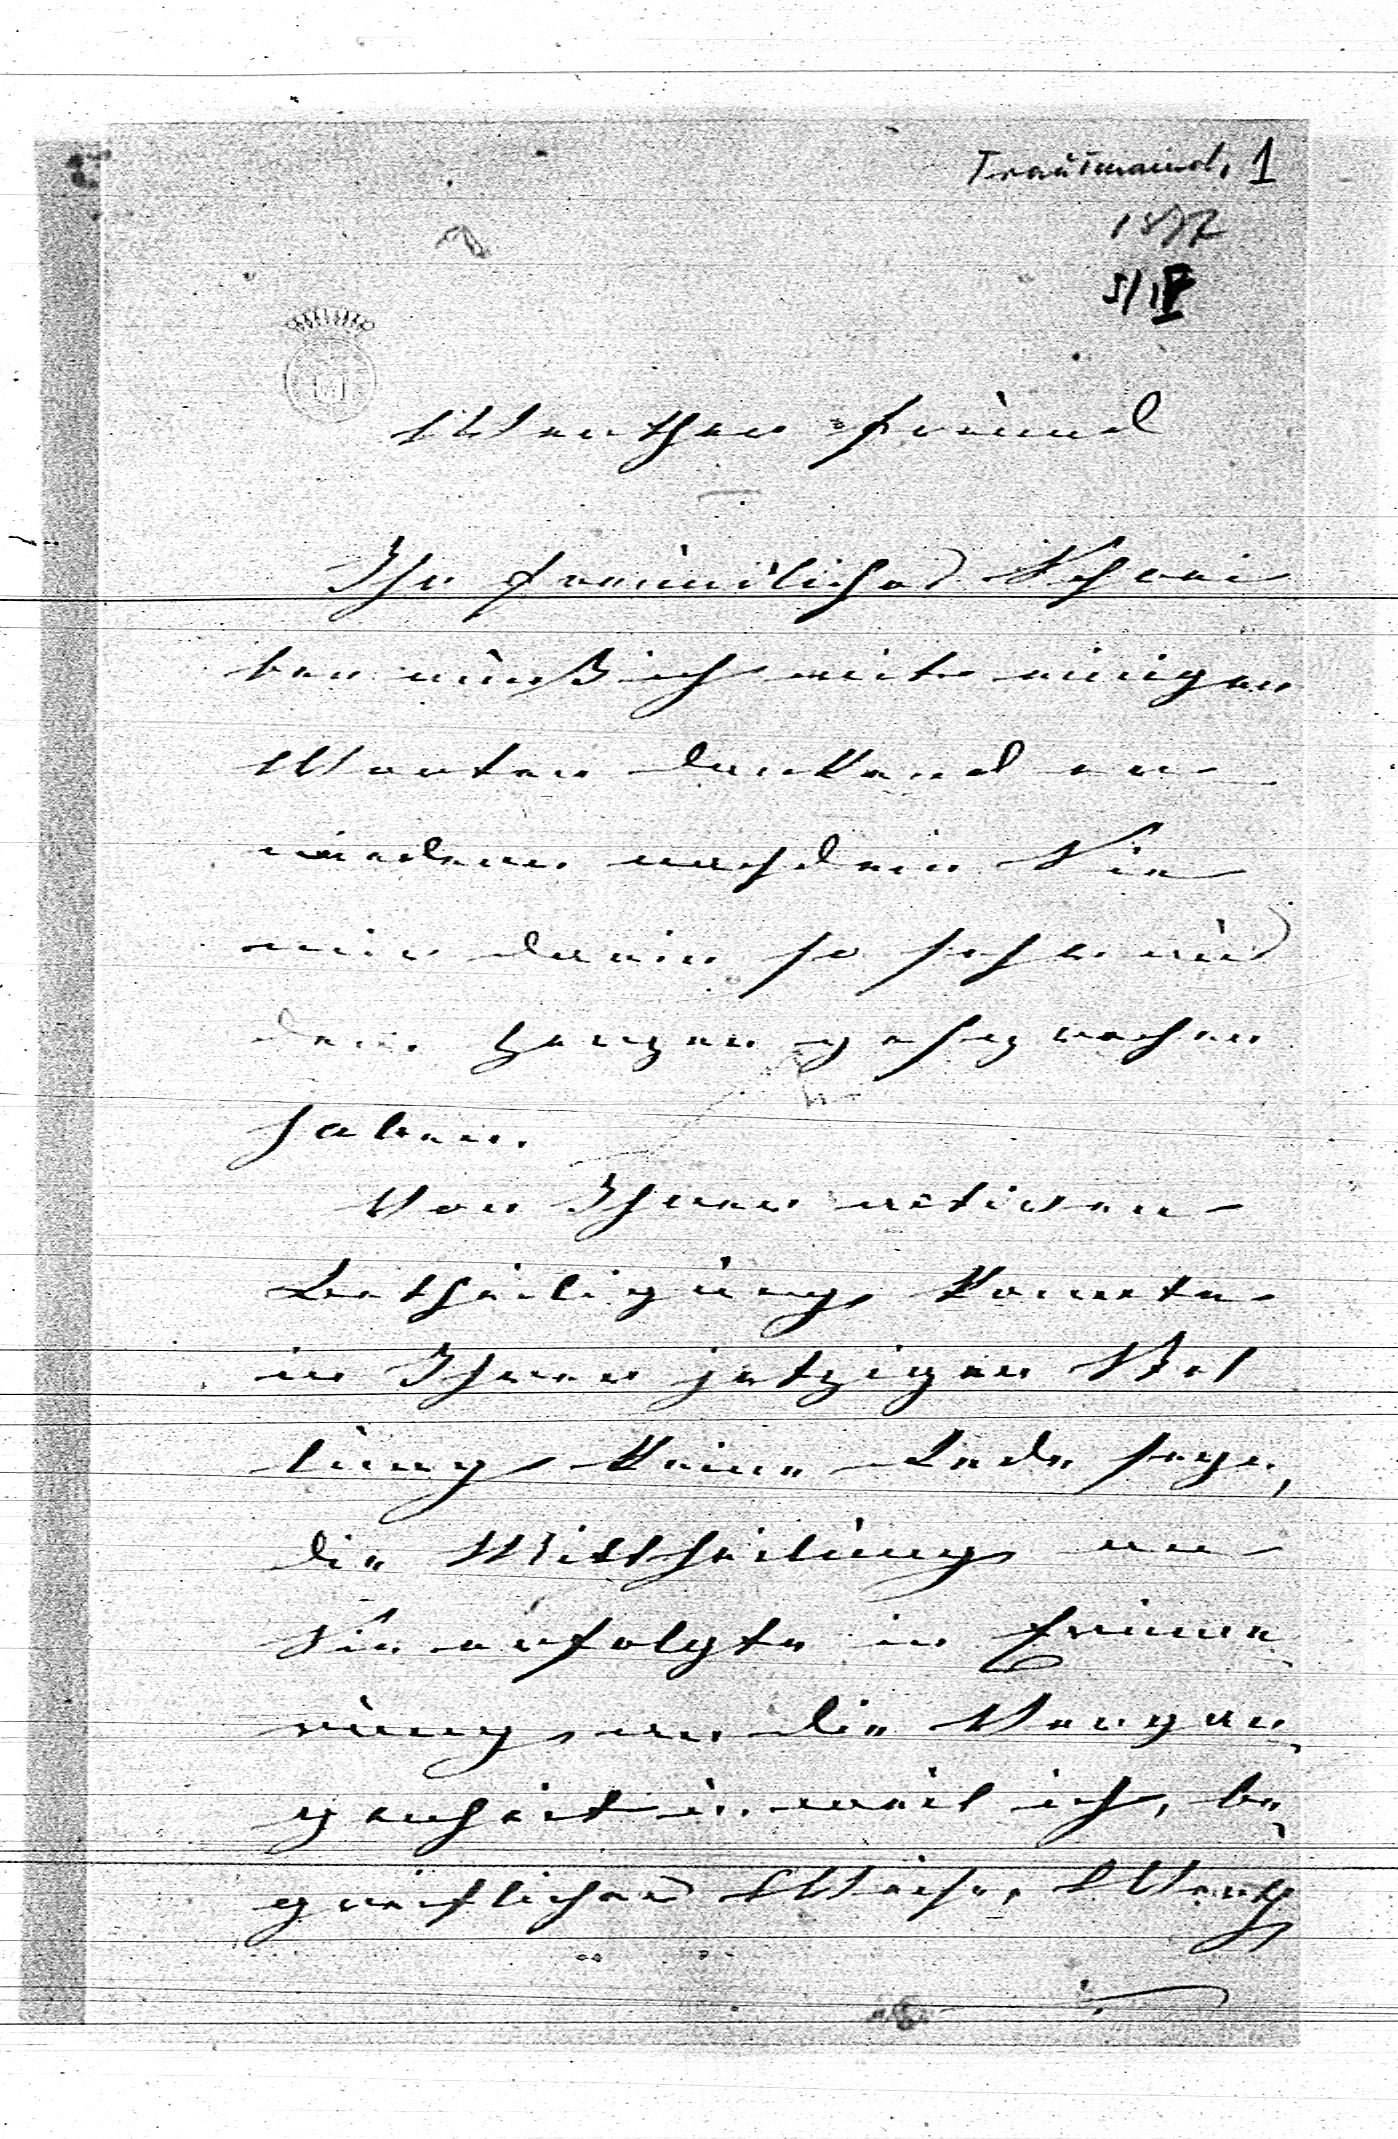 Trautmansd. 1
1877
5/IV
Werther Freund
Ihr freundliches Schrei
ben muß ich mit einigen
Worten dankend er-
wiedern nachdem Sie
mir darin so sehr aus
dem Herzen gesprochen
haben.
Von Ihrer activen
Betheiligung konnte
in Ihrer jetzigen Stel
lung keine Rede seyn,
die Mittheilung an
Sie erfolgte in Erinne
rung an die Vergan
genheit u. weil ich, be
greiflicher Weise, Werth